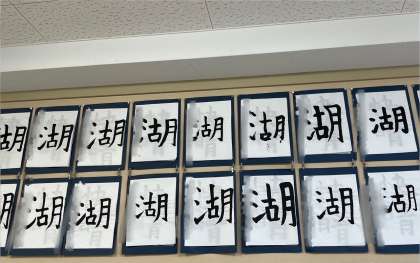 湖 湖 湖 湖 湖 湖 湖 湖
湖 湖 湖 湖 湖 湖 湖